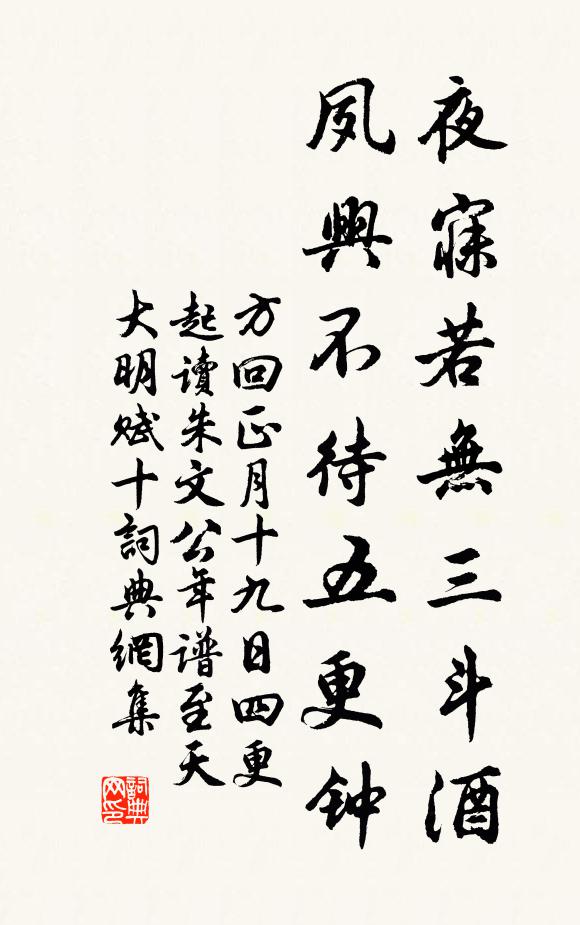 夜寐若無三斗酒
夙興不待五更钟
方回正月十九日四更
起讀朱文公年谱至天
大明赋十詞典網集
詞典网印